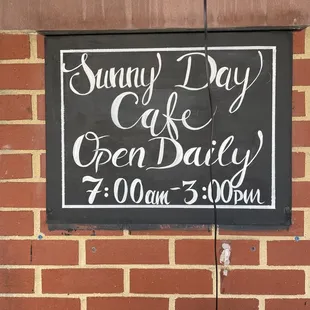 Sunny Day
Cafe
Open Daily
7:00am-3:00pm